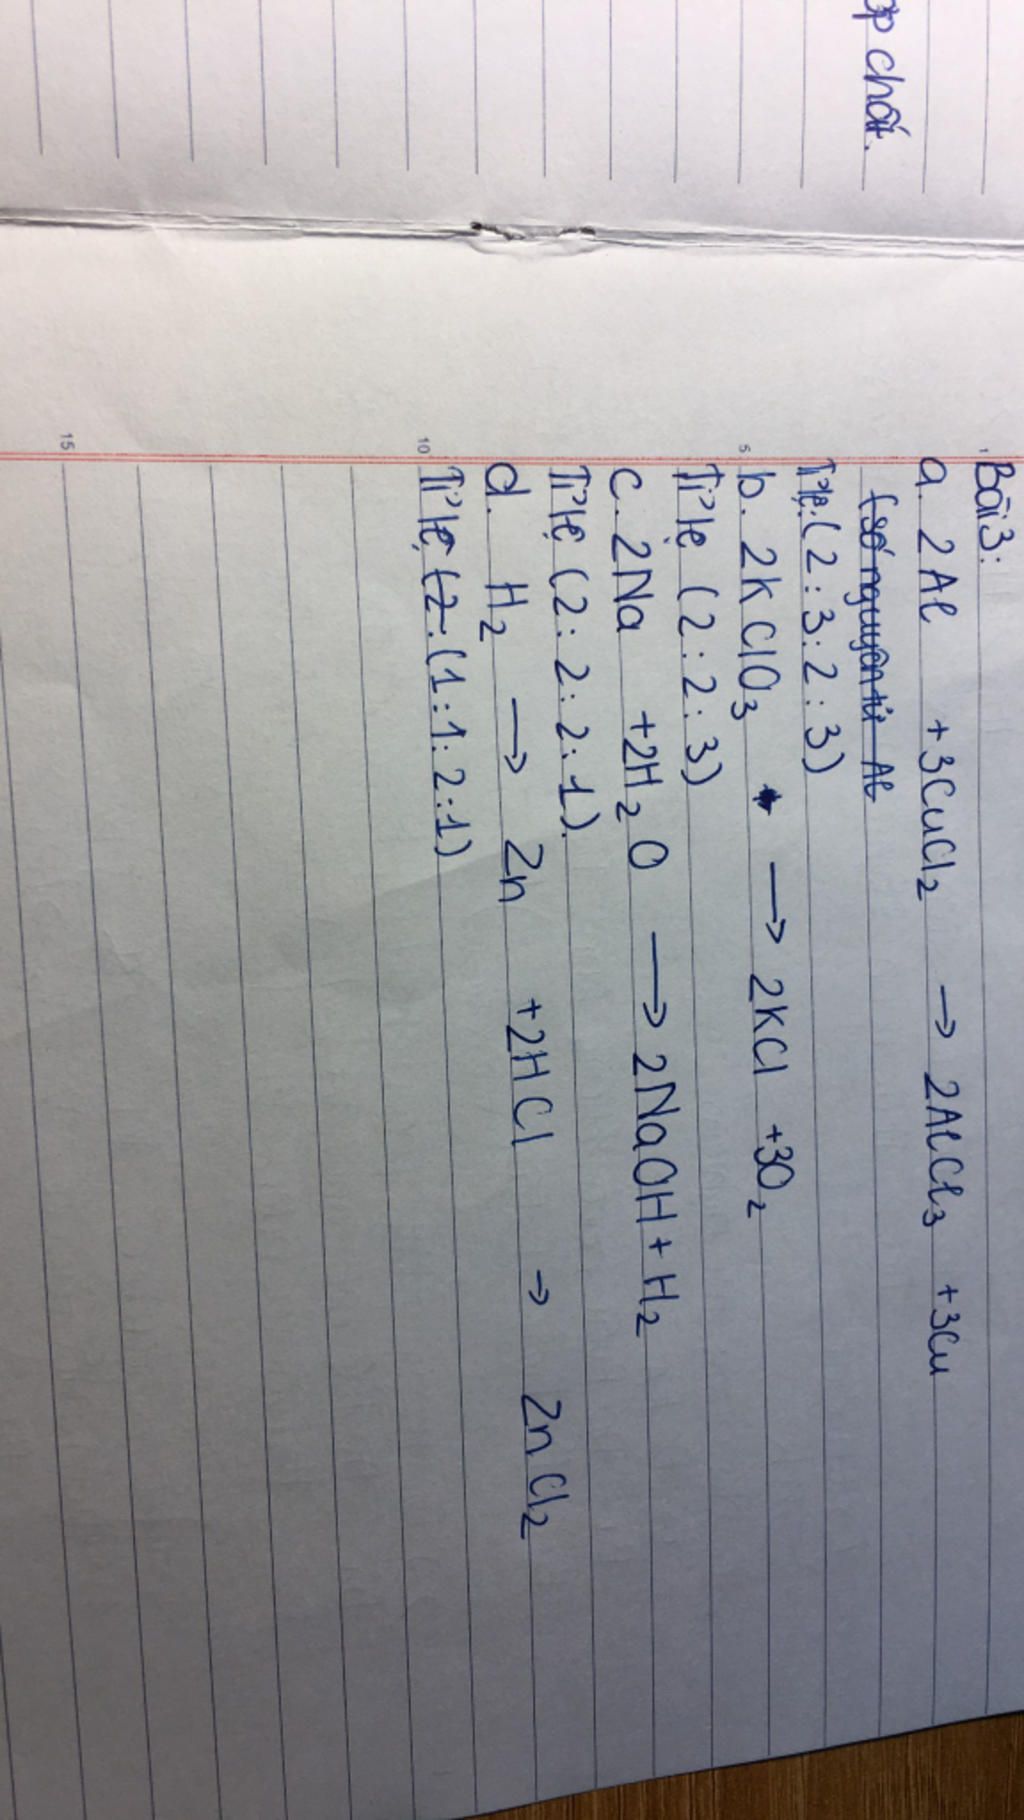 chất.
1
Bài 3:
a. 2Al + 3CuCl₂ → 2AlCl₃ + 3Cu
(số nguyên tử Al
Tỉ lệ: (2 : 3 : 2 : 3)
5
b. 2KClO₃ → 2KCl + 3O₂
Tỉ lệ (2 : 2 : 3)
c. 2Na + 2H₂O → 2NaOH + H₂
Tỉ lệ (2 : 2 : 2 : 1).
d. H₂ → Zn + 2HCl → ZnCl₂
10
Tỉ lệ, (2. (1 : 1 : 2 : 1)
15